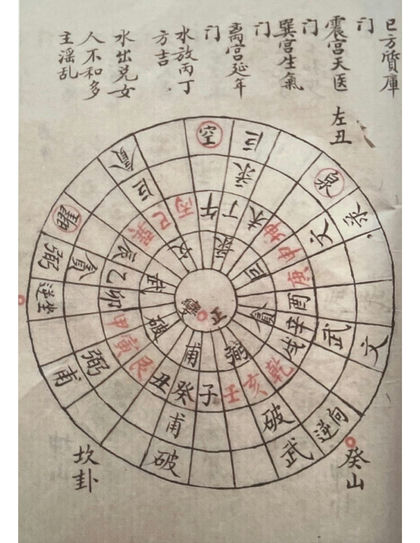 巳方質庫
门
震宫天医 左丑
门
巽宫生氣
门
离宫延年
门
水放丙丁
方吉
水出兑女
人不和多
主滛乱
癸山
坎卦
逆向
逆坐
空
子
癸
丑
艮
寅
甲
卯
乙
辰
巽
巳
丙
午
丁
未
坤
申
庚
酉
辛
戌
乾
亥
壬
破
武
文
武
文
甫
弼
破
甫
弼
破
甫
弼
武
破
正